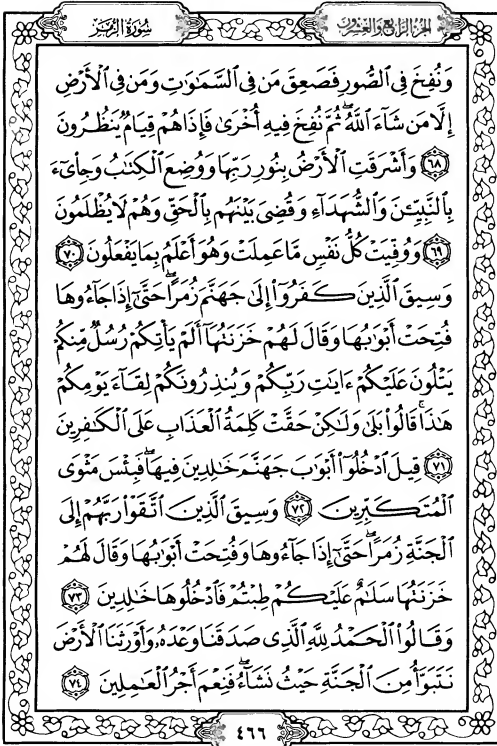 الجزء الرابع والعشرون
سُورَةُ الزُّمَرِ
وَنُفِخَ فِي ٱلصُّورِ فَصَعِقَ مَن فِي ٱلسَّمَٰوَٰتِ وَمَن فِي ٱلْأَرْضِ
إِلَّا مَن شَآءَ ٱللَّهُ ۖ ثُمَّ نُفِخَ فِيهِ أُخْرَىٰ فَإِذَا هُمْ قِيَامٌ يَنظُرُونَ
٦٨ وَأَشْرَقَتِ ٱلْأَرْضُ بِنُورِ رَبِّهَا وَوُضِعَ ٱلْكِتَٰبُ وَجِا۟ىٓءَ
بِٱلنَّبِيِّۦنَ وَٱلشُّهَدَآءِ وَقُضِىَ بَيْنَهُم بِٱلْحَقِّ وَهُمْ لَا يُظْلَمُونَ
٦٩ وَوُفِّيَتْ كُلُّ نَفْسٍ مَّا عَمِلَتْ وَهُوَ أَعْلَمُ بِمَا يَفْعَلُونَ ٧٠
وَسِيقَ ٱلَّذِينَ كَفَرُوٓا۟ إِلَىٰ جَهَنَّمَ زُمَرًا ۖ حَتَّىٰٓ إِذَا جَآءُوهَا
فُتِحَتْ أَبْوَٰبُهَا وَقَالَ لَهُمْ خَزَنَتُهَآ أَلَمْ يَأْتِكُمْ رُسُلٌ مِّنكُمْ
يَتْلُونَ عَلَيْكُمْ ءَايَٰتِ رَبِّكُمْ وَيُنذِرُونَكُمْ لِقَآءَ يَوْمِكُمْ
هَٰذَا ۚ قَالُوا۟ بَلَىٰ وَلَٰكِنْ حَقَّتْ كَلِمَةُ ٱلْعَذَابِ عَلَى ٱلْكَٰفِرِينَ
٧١ قِيلَ ٱدْخُلُوٓا۟ أَبْوَٰبَ جَهَنَّمَ خَٰلِدِينَ فِيهَا ۖ فَبِئْسَ مَثْوَى
ٱلْمُتَكَبِّرِينَ ٧٢ وَسِيقَ ٱلَّذِينَ ٱتَّقَوْا۟ رَبَّهُمْ إِلَى
ٱلْجَنَّةِ زُمَرًا ۖ حَتَّىٰٓ إِذَا جَآءُوهَا وَفُتِحَتْ أَبْوَٰبُهَا وَقَالَ لَهُمْ
خَزَنَتُهَا سَلَٰمٌ عَلَيْكُمْ طِبْتُمْ فَٱدْخُلُوهَا خَٰلِدِينَ ٧٣
وَقَالُوا۟ ٱلْحَمْدُ لِلَّهِ ٱلَّذِى صَدَقَنَا وَعْدَهُۥ وَأَوْرَثَنَا ٱلْأَرْضَ
نَتَبَوَّأُ مِنَ ٱلْجَنَّةِ حَيْثُ نَشَآءُ ۖ فَنِعْمَ أَجْرُ ٱلْعَٰمِلِينَ ٧٤
٤٦٦